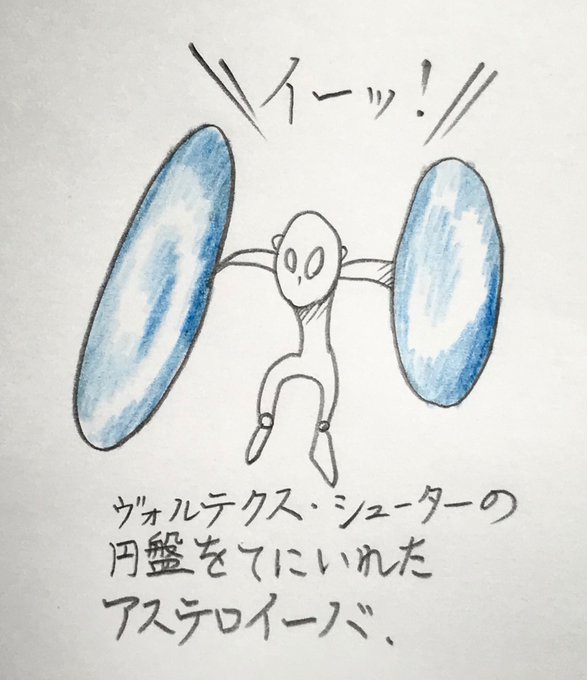 イーッ!
ヴォルテクス・シューターの
円盤をてにいれた
アステロイーバ.